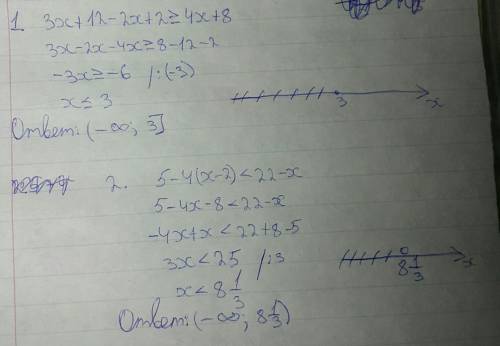 1 3x+12-2x+2≥4x+8
3x-2x-4x≥8-12-2
-3x≥-6 /:(-3)
x≤3
3 x
Ответ: (-∞; 3]
2. 5-4(x-2)<22-x
5-4x-8<22-x
-4x+x<22+8-5
3x<25 /:3
x<8 1/3
8 1/3 x
Ответ: (-∞; 8 1/3)